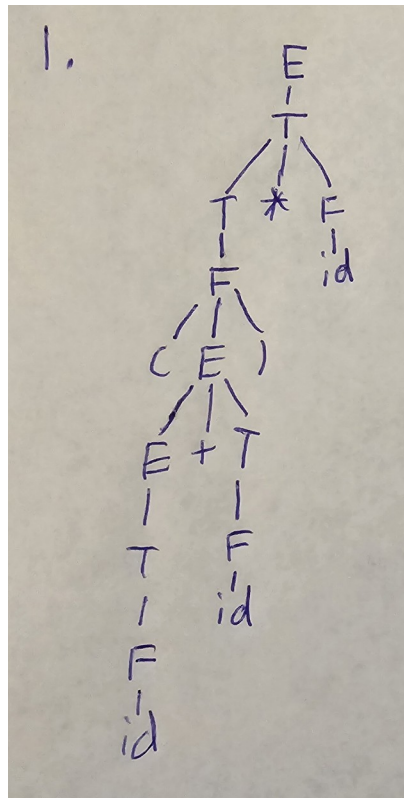 1.
E
T
T * F
id
F
( E )
E + T
T
F
id
F
id